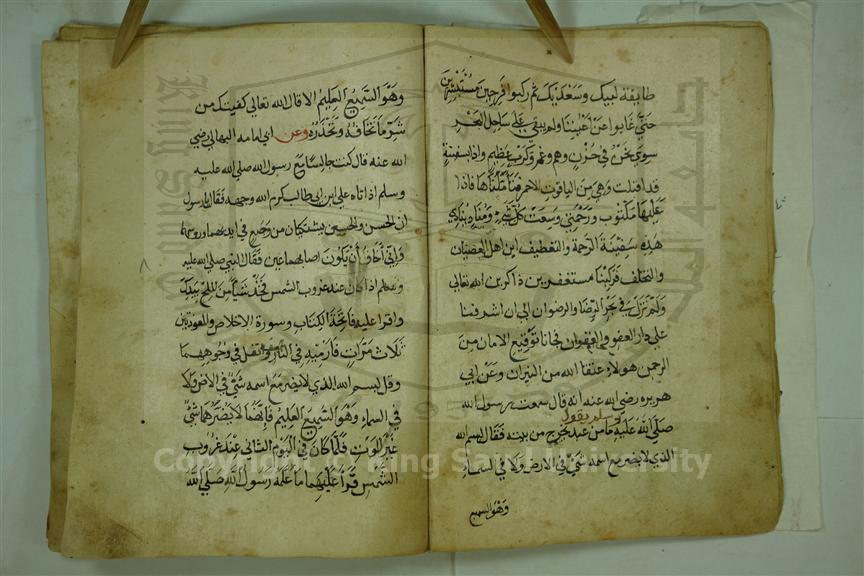 طايفة لبيك وسعديك ثم ركبوا فرحين مستبشرين
حتي غابوا عن اعيننا ولم يبقي علي ساحل البحر
سوي نحن في حزن وهم وغم وكرب عظيم واذا بسفينة
قد اقبلت وهي من الياقوت الاحمر فاذا
عليها مكتوب ورحمتي وسعت كل شيء ومناد ينادي
هذه سفينة الرحمة والتعطيف اين اهل العصيان
والتخلف فركبنا مستغفرين ذاكرين الله تعالي
ولم نزل في بحر الرضا والرضوان الي ان اشرفنا
علي دار العفو والغفران فجانا توقيع الامان من
الرحمن هولاء عتقنا الله من النيران وعن ابي
هريره رضي الله عنه انه قال سمعت رسول الله
صلي الله عليه وسلم يقول ما من عبد خرج من بيته فقال بسم الله
الذي لا يضر مع اسمه شيء في الارض ولا في السماء
وهو السميع
وهو السميع العليم الا قال الله تعالي كفيتك من
شر ما تخافه وتحذره وعن ابي امامه الباهلي رضي
الله عنه قال كنت جالسا مع رسول الله صلي الله عليه
وسلم اذ اتاه علي ابن ابي طالب كرم الله وجهه فقال يا رسول
ان الحسن والحسين يشتكيان من وجع في ابدنهما وروسهما
واني اخاف ان تكون اصابهما عين فقال النبي صلي الله عليه
وسلم اذا كان عند غروب الشمس فخذ شيا من الملح بيدك
واقرا عليه فاتحة الكتاب وسورة الاخلاص والمعوذتين
ثلاث مرات فارميه في النار واتفل في وجوههما
وقل بسم الله الذي لا يضر مع اسمه شيء في الارض ولا
في السماء وهو السميع العليم فانهما لا يضرهما شيء
غير الموت فلما كان في اليوم الثاني عند غروب
الشمس قرا عليهما ما علمه رسول الله صلي الله
Copyright © King Saud University